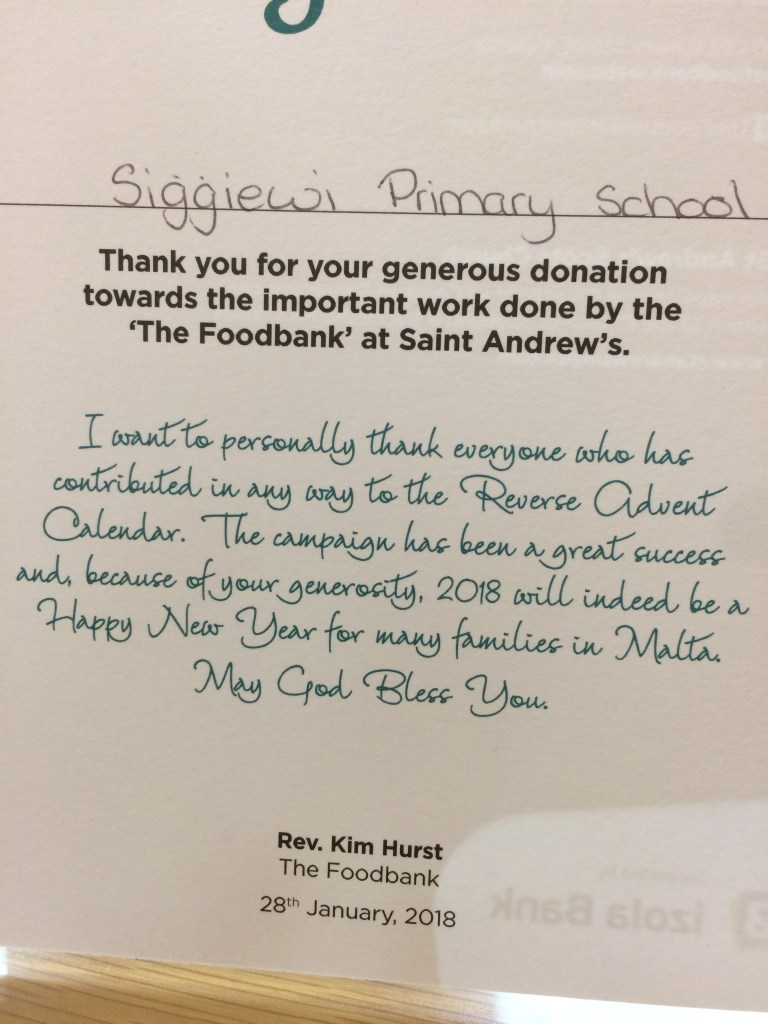 Siġġiewi Primary School
Thank you for your generous donation
towards the important work done by the
‘The Foodbank’ at Saint Andrew’s.
I want to personally thank everyone who has
contributed in any way to the Reverse Advent
Calendar. The campaign has been a great success
and, because of your generosity, 2018 will indeed be a
Happy New Year for many families in Malta.
May God Bless You.
Rev. Kim Hurst
The Foodbank
28th January, 2018
Izola Bank